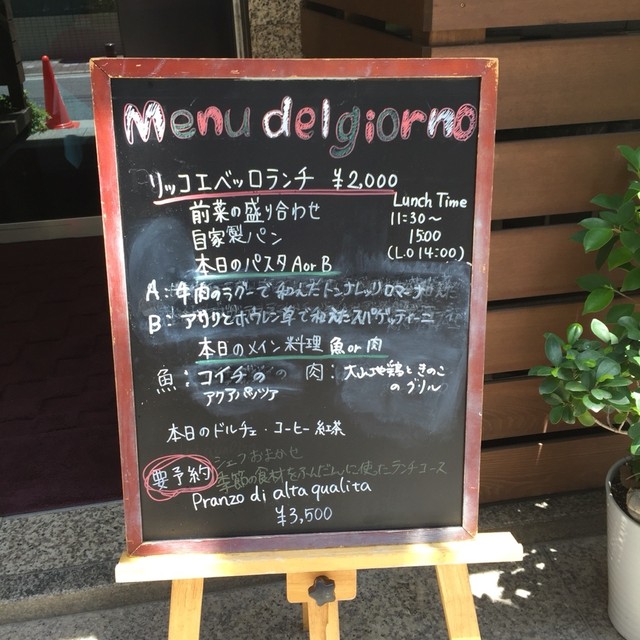 Menu del giorno
リッコエベッロランチ ¥2,000
Lunch Time
11:30〜
15:00
(L.O 14:00)
前菜の盛り合わせ
自家製パン
本日のパスタ A or B
A: 牛肉のラグーで和えたトンナレッリ ロマーナ
B: アサリとホウレン草で和えたスパゲッティーニ
本日のメイン料理 魚 or 肉
魚: コイチの
アクアパッツア
肉: 大山地鶏ときのこ
のグリル
本日のドルチェ・コーヒー 紅茶
要予約
シェフおまかせ
季節の食材をふんだんに使ったランチコース
Pranzo di alta qualita
¥3,500